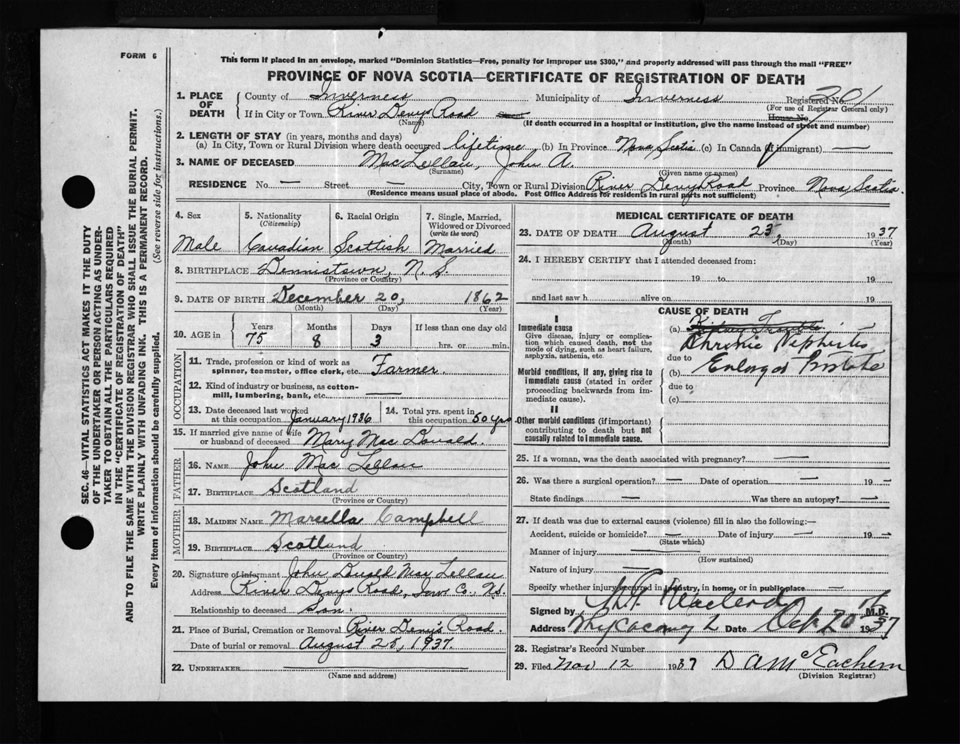 FORM 6
This form if placed in an envelope, marked "Dominion Statistics—Free, penalty for improper use $300," and properly addressed will pass through the mail "FREE"
PROVINCE OF NOVA SCOTIA—CERTIFICATE OF REGISTRATION OF DEATH
SEC. 46—VITAL STATISTICS ACT MAKES IT THE DUTY
OF THE UNDERTAKER OR PERSON ACTING AS UNDER-
TAKER TO OBTAIN ALL THE PARTICULARS REQUIRED
IN THE "CERTIFICATE OF REGISTRATION OF DEATH"
AND TO FILE THE SAME WITH THE DIVISION REGISTRAR WHO SHALL ISSUE THE BURIAL PERMIT.
WRITE PLAINLY WITH UNFADING INK. THIS IS A PERMANENT RECORD.
Every item of information should be carefully supplied. (See reverse side for instructions.)
1. PLACE OF DEATH County of Inverness Municipality of Inverness Registered No. 201
(For use of Registrar General only)
If in City or Town River Denys Road House No.
(Name) (If death occurred in a hospital or institution, give the name instead of street and number)
2. LENGTH OF STAY (in years, months and days)
(a) In City, Town or Rural Division where death occurred lifetime (b) In Province Nova Scotia (c) In Canada (if immigrant) —
3. NAME OF DECEASED MacLellan, John A.
(Surname) (Given name or names)
RESIDENCE No. — Street City, Town or Rural Division River Denys Road Province Nova Scotia
(Residence means usual place of abode. Post Office Address for residents in rural parts not sufficient)
4. Sex Male
5. Nationality (Citizenship) Canadian
6. Racial Origin Scottish
7. Single, Married, Widowed or Divorced (write the word) Married
8. BIRTHPLACE Dennistown, N.S.
(Province or Country)
9. DATE OF BIRTH December 20, 1862
(Month) (Day) (Year)
10. AGE in Years 75 Months 8 Days 3 If less than one day old hrs. or min.
OCCUPATION
11. Trade, profession or kind of work as spinner, teamster, office clerk, etc. Farmer
12. Kind of industry or business, as cotton-mill, lumbering, bank, etc. —
13. Date deceased last worked at this occupation January 1936
14. Total yrs. spent in this occupation 50 yrs
15. If married give name of wife or husband of deceased Mary MacDonald
FATHER
16. NAME John MacLellan
17. BIRTHPLACE Scotland
(Province or Country)
MOTHER
18. MAIDEN NAME Marcella Campbell
19. BIRTHPLACE Scotland
(Province or Country)
20. Signature of informant John Donald MacLellan
Address River Denys Road, Inv. Co., N.S.
Relationship to deceased Son.
21. Place of Burial, Cremation or Removal River Denys Road.
Date of burial or removal August 25, 1937.
22. UNDERTAKER
(Name and address)
MEDICAL CERTIFICATE OF DEATH
23. DATE OF DEATH August 23, 1937
(Month) (Day) (Year)
24. I HEREBY CERTIFY that I attended deceased from:
19 to 19
and last saw h alive on 19
CAUSE OF DEATH
I
Immediate cause
Give disease, injury or complication which caused death, not the mode of dying, such as heart failure, asphyxia, asthenia, etc.
(a) Kidney Trouble
Chronic Nephritis
due to
Morbid conditions, if any, giving rise to immediate cause (stated in order proceeding backwards from immediate cause).
(b) Enlarged Prostate
due to
(c)
II
Other morbid conditions (if important) contributing to death but not causally related to immediate cause.
25. If a woman, was the death associated with pregnancy? —
26. Was there a surgical operation? — Date of operation — 19 —
State findings — Was there an autopsy? —
27. If death was due to external causes (violence) fill in also the following:—
Accident, suicide or homicide? — Date of injury — 19 —
(State which)
Manner of injury —
(How sustained)
Nature of injury —
Specify whether injury occurred in industry, in home, or in public place
Signed by Macleod M.D.
Address Whycocomagh Date Oct 20 1937
28. Registrar's Record Number
29. Filed Nov 12 1937 D A McEachern
(Division Registrar)